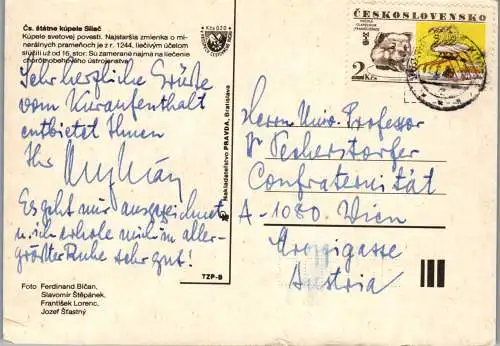 Čs. štátne kúpele Sliač
Kúpele svetovej povesti. Najstaršia zmienka o mi-
nerálnych prameňoch je z r. 1244, liečivým účelom
slúžili už od 16. stor. Sú zamerané najmä na liečenie
chorôb obehového ústrojenstva
Kčs 0,20
Sehr herzliche Grüße
vom Kuraufenthalt
entbietet Ihnen
Ihr
Es geht mir ausgezeichnet
u. ich erhole mich in aller-
größter Ruhe sehr gut!
Foto Ferdinand Bičan,
Slavomír Štěpánek,
František Lorenc,
Jozef Šťastný
Nakladateľstvo PRAVDA, Bratislava
TZP-B
ČESKOSLOVENSKO
2 Kčs
Herrn Univ. Professor
Dr Pecherstorfer
Confraternität
A - 1080. Wien
Austria